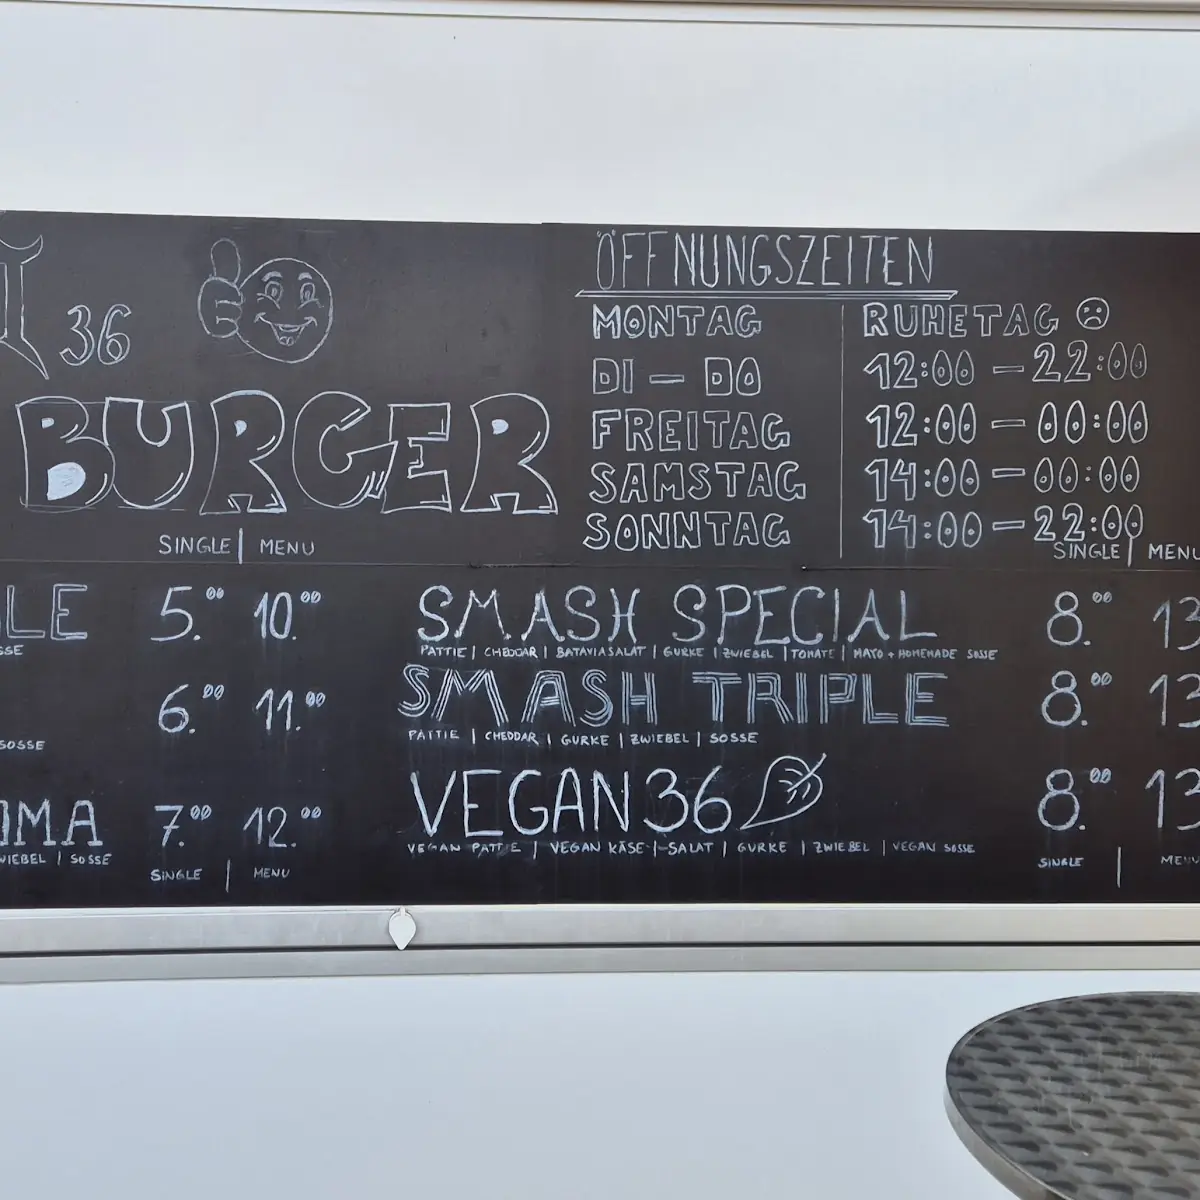 36
BURGER
SINGLE | MENU
LE 5.00 10.00
SSE
6.00 11.00
SOSSE
OMA 7.00 12.00
WIEBEL | SOSSE
SINGLE | MENU
ÖFFNUNGSZEITEN
MONTAG RUHETAG
DI — DO 12:00 — 22:00
FREITAG 12:00 — 00:00
SAMSTAG 14:00 — 00:00
SONNTAG 14:00 — 22:00
SINGLE | MENU
SMASH SPECIAL 8.00 13
PATTIE | CHEDDAR | BATAVIASALAT | GURKE | ZWIEBEL | TOMATE | MAYO + HOMEMADE SOSSE
SMASH TRIPLE 8.00 13
PATTIE | CHEDDAR | GURKE | ZWIEBEL | SOSSE
VEGAN36 8.00 13
VEGAN PATTIE | VEGAN KÄSE | SALAT | GURKE | ZWIEBEL | VEGAN SOSSE
SINGLE | MENU